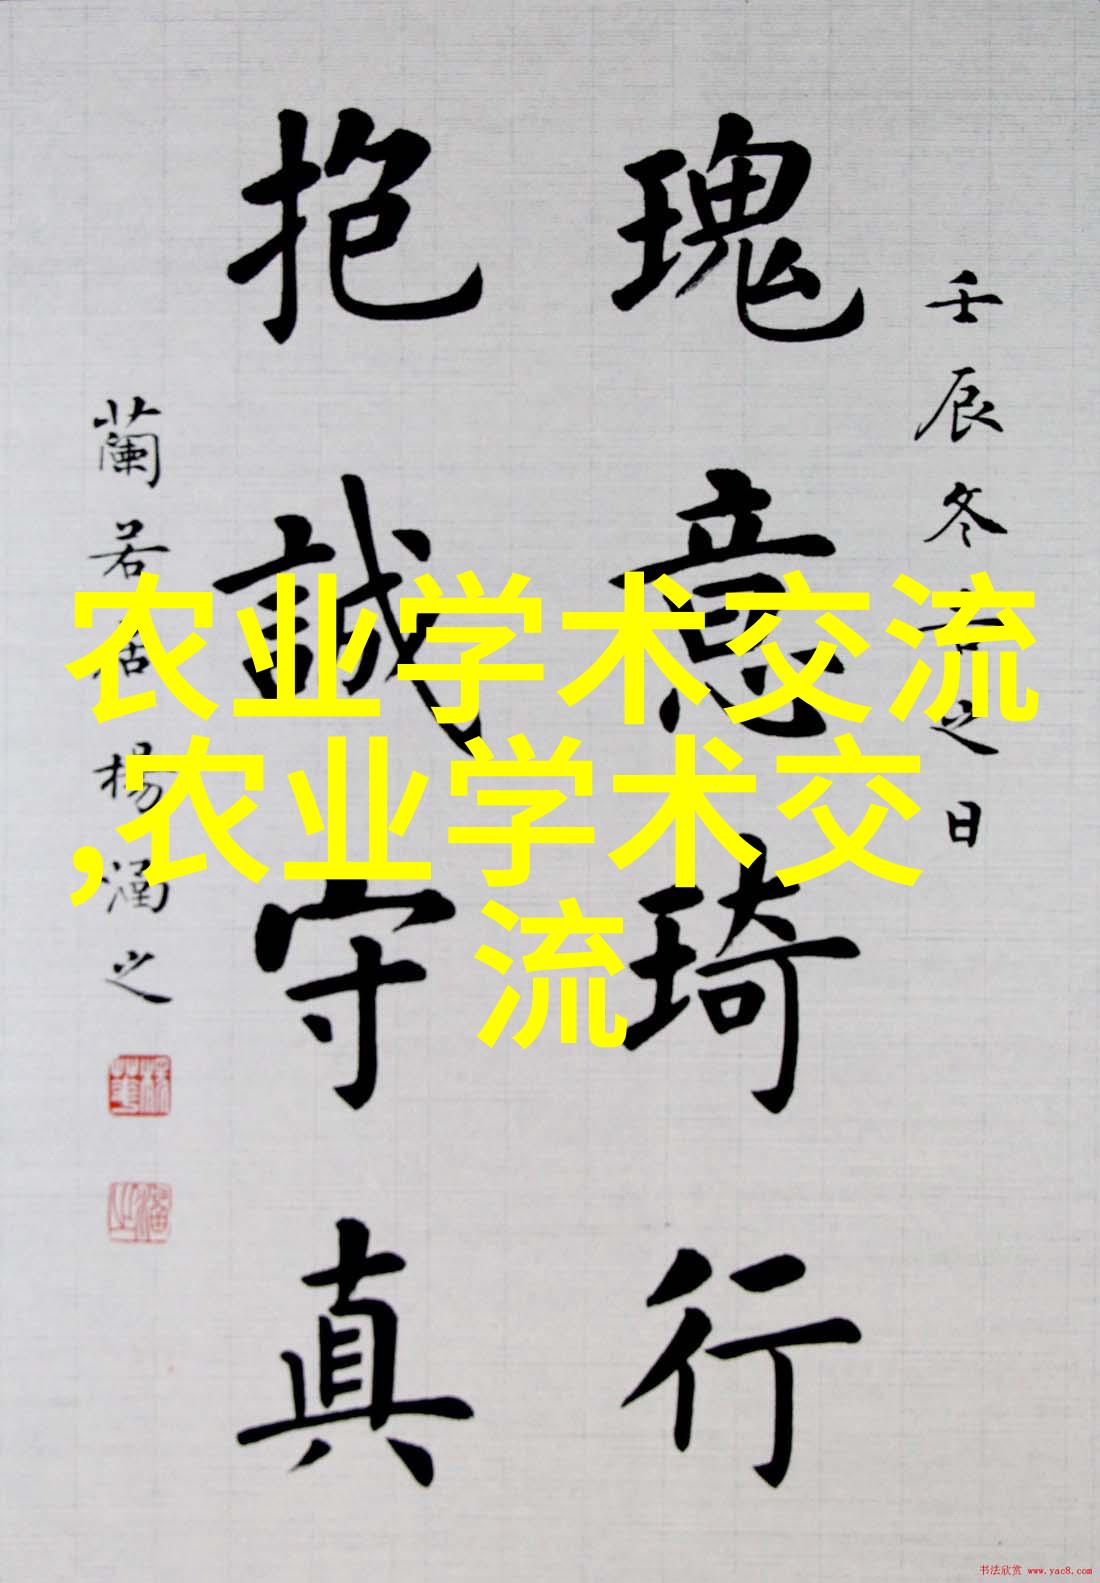 壬辰冬吉之日
瑰意琦行
抱誠守真
蘭若居 楊涵之
农业学术交流
,农业学术交
流
书法欣赏 www.yac8.com